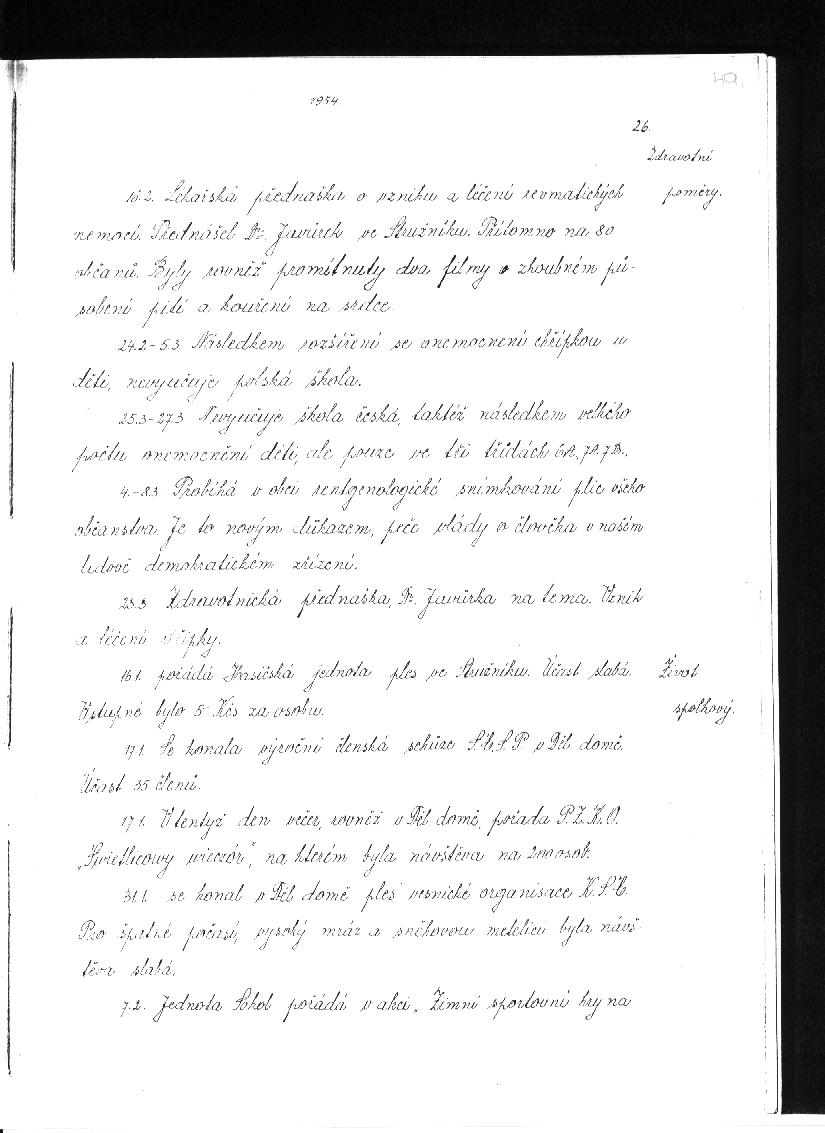 49.
1954
26.
Zdravotní
poměry.
16.2. Lékařská přednáška o vzniku a léčení revmatických
nemocí. Přednášel Dr. Javůrek ve Stružníku. Přítomno na 80
občanů. Byly rovněž promítnuty dva filmy o zhoubném pů-
sobení pití a kouření na srdce.
24.2-5.3. Následkem rozšíření se onemocnění chřipkou u
dětí, nevyučuje polská škola.
25.3-27.3 Nevyučuje škola česká, taktéž následkem velkého
počtu onemocnění dětí, ale pouze ve tři třídách 6A, 7A, 7B.
4.-8.3. Probíhá v obci rentgenologické snímkování plic všeho
občanstva. Je to novým důkazem, péče vlády o člověka v našem
lidově demokratickém zřízení.
23.3 Zdravotnická přednáška, Dr. Javůrka na tema. Vznik
a léčení chřipky.
16.1. pořádá Hasičská jednota ples ve Stružníku. Účast slabá.
Vstupné bylo 5 Kčs za osobu.
Život
spolkový.
17.1. Se konala výroční členská schůze S.Č.S.P. v Děl. domě.
Účast 35 členů.
17.1. V tentýž den večer, rovněž v Děl domě, pořáda P.Z.K.O.
„Świetlicowy wieczór", na kterém byla návštěva na 200 osob.
31.1. se konal v Děl domě ples vesnické organisace K.S.Č.
Pro špatné počasí, vysoký mráz a sněhovou metelici byla návš-
těva slabá.
7.2. Jednota Sokol pořádá v akci „Zimní sportovní hry na